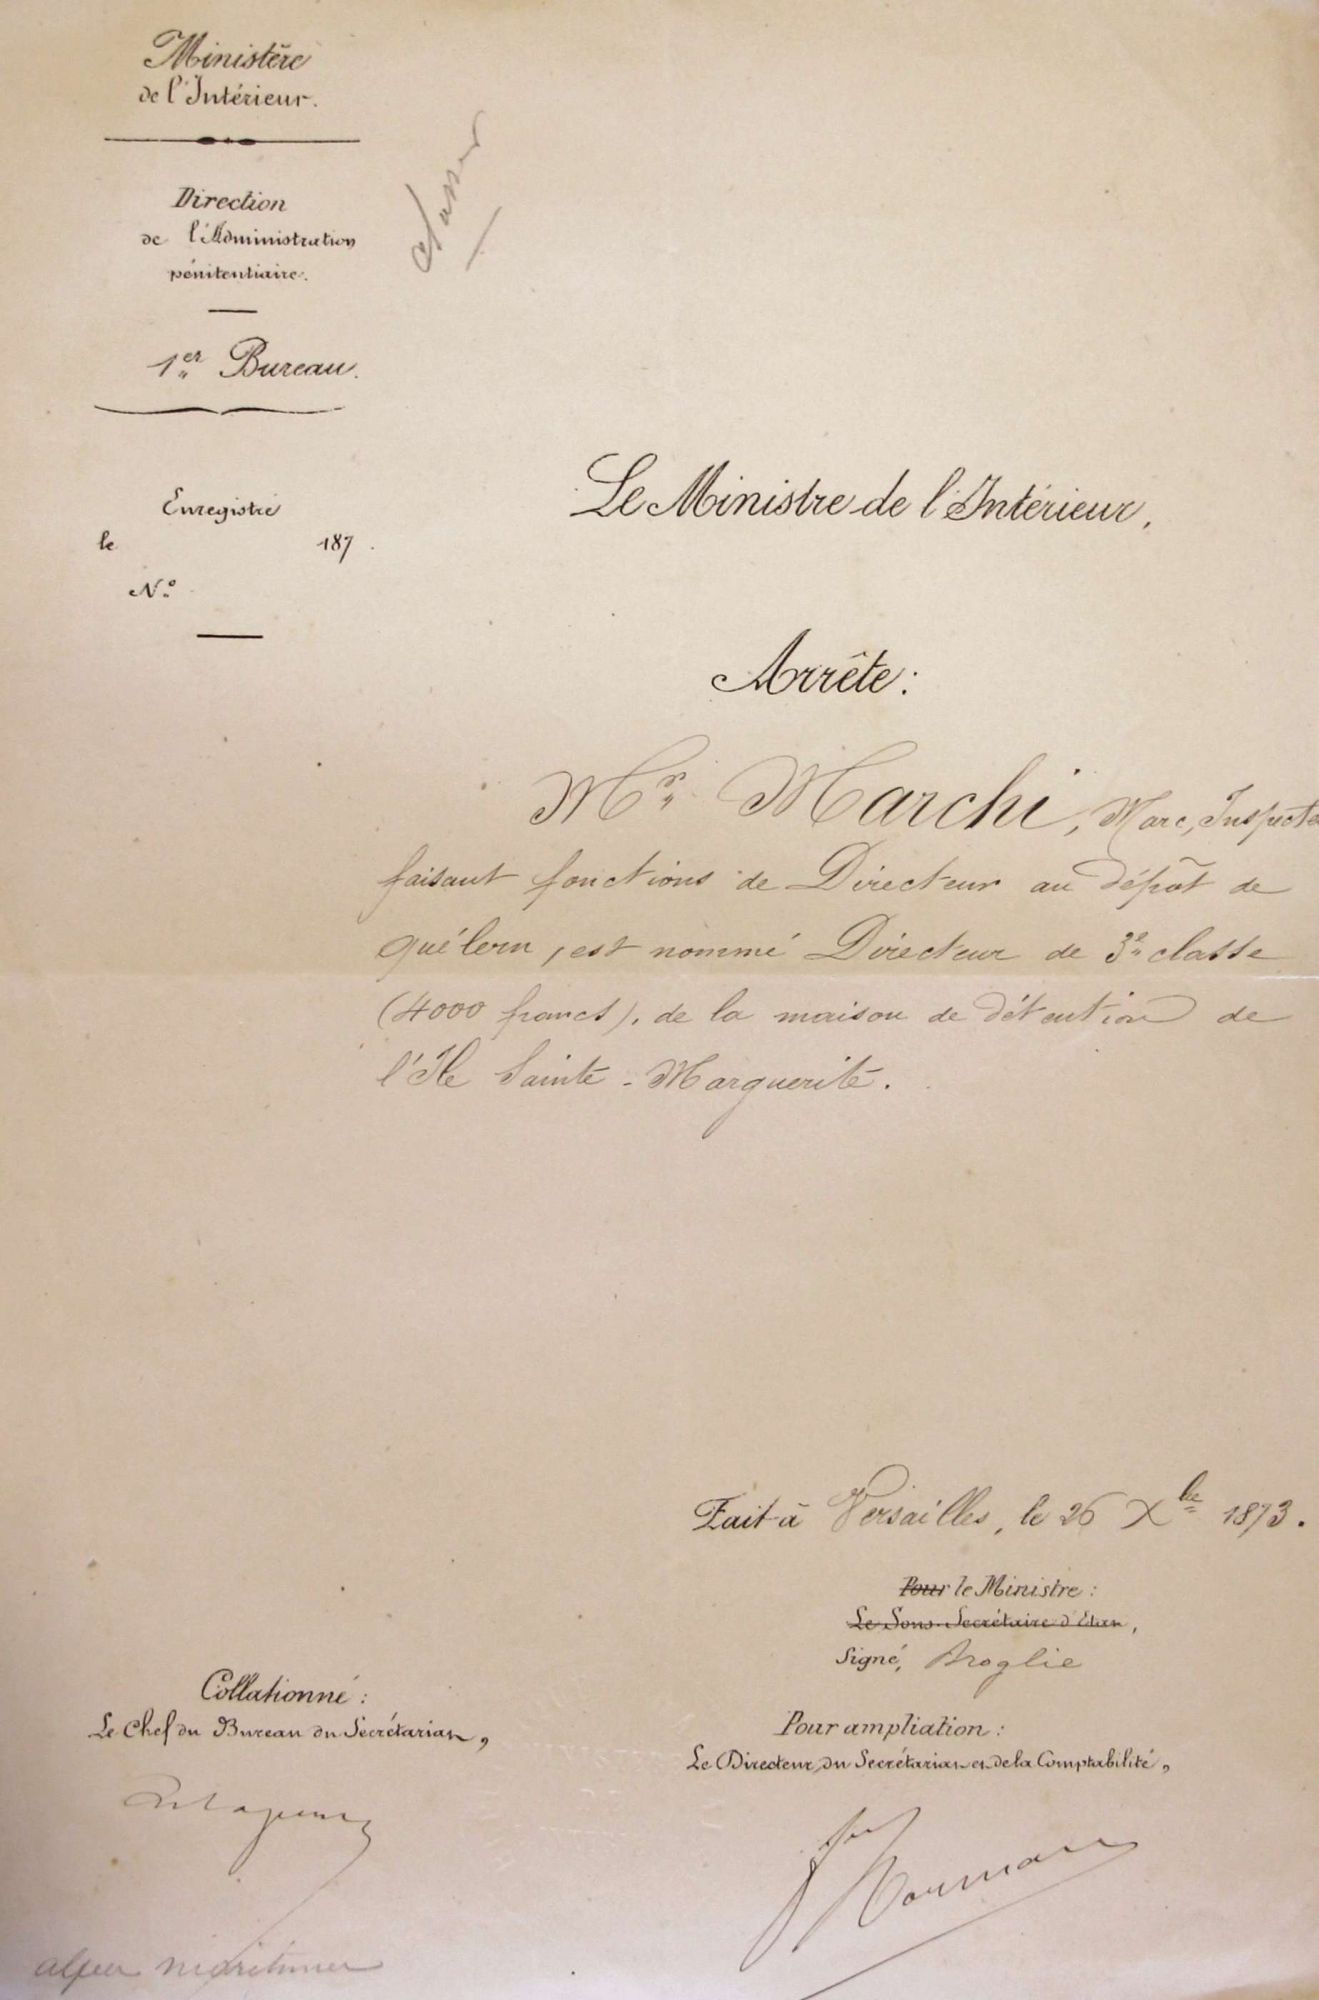 Ministère
de l'Intérieur.
Classer
Direction
de l'Administration
pénitentiaire.
1er Bureau.
Enregistré
le 187 .
N.o
Le Ministre de l'Intérieur,
Arrête:
Mr. Marchi, Marc, Inspecte
faisant fonctions de Directeur au dépôt de
Quélern, est nommé Directeur de 3e classe
(4000 francs), de la maison de détention de
l'Ile Sainte-Marguerite.
Fait à Versailles, le 26 Xbre 1873.
Pour le Ministre:
Le Sous-Secrétaire d'Etat,
Signé, Broglie
Collationné:
Le Chef du Bureau du Secrétariat,
Pour ampliation:
Le Directeur du Secrétariat et de la Comptabilité,
alpes maritimes